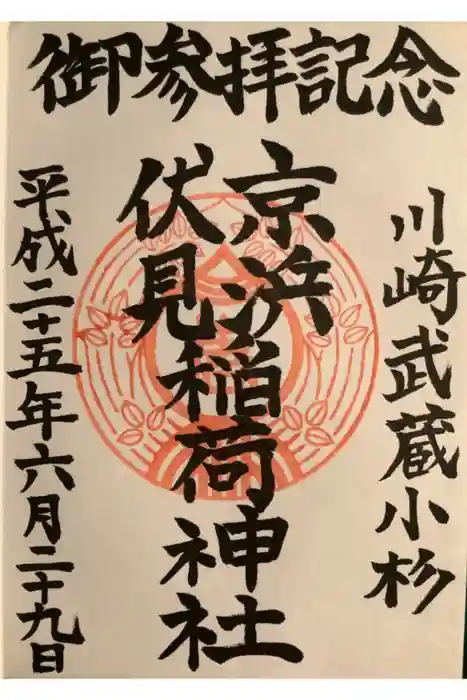 御参拝記念
川崎武蔵小杉
京浜
伏見
稲荷神社
平成二十五年六月二十九日